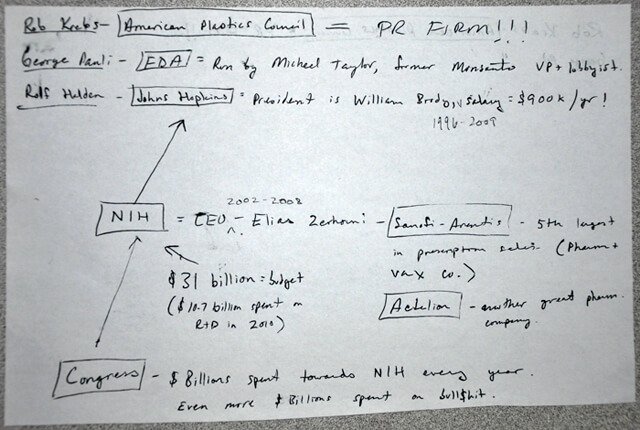 Rob Krebs - American Plastics Council = PR FIRM!!!
George Pauli - FDA = Run by Michael Taylor, former Monsanto VP + lobbyist.
Rolf Halden - Johns Hopkins = President is William Brody, salary = $900k/yr!
1996-2009
2002-2008
NIH = CEO - Elias Zerhouni - Sanofi-Aventis - 5th largest
in prescription sales. (Pharm +
vax co.)
$31 billion = budget
($10.7 billion spent on
R+D in 2010)
Actelion - another great pharm.
company.
Congress - $ Billions spent towards NIH every year.
Even more $ Billions spent on bull$hit.